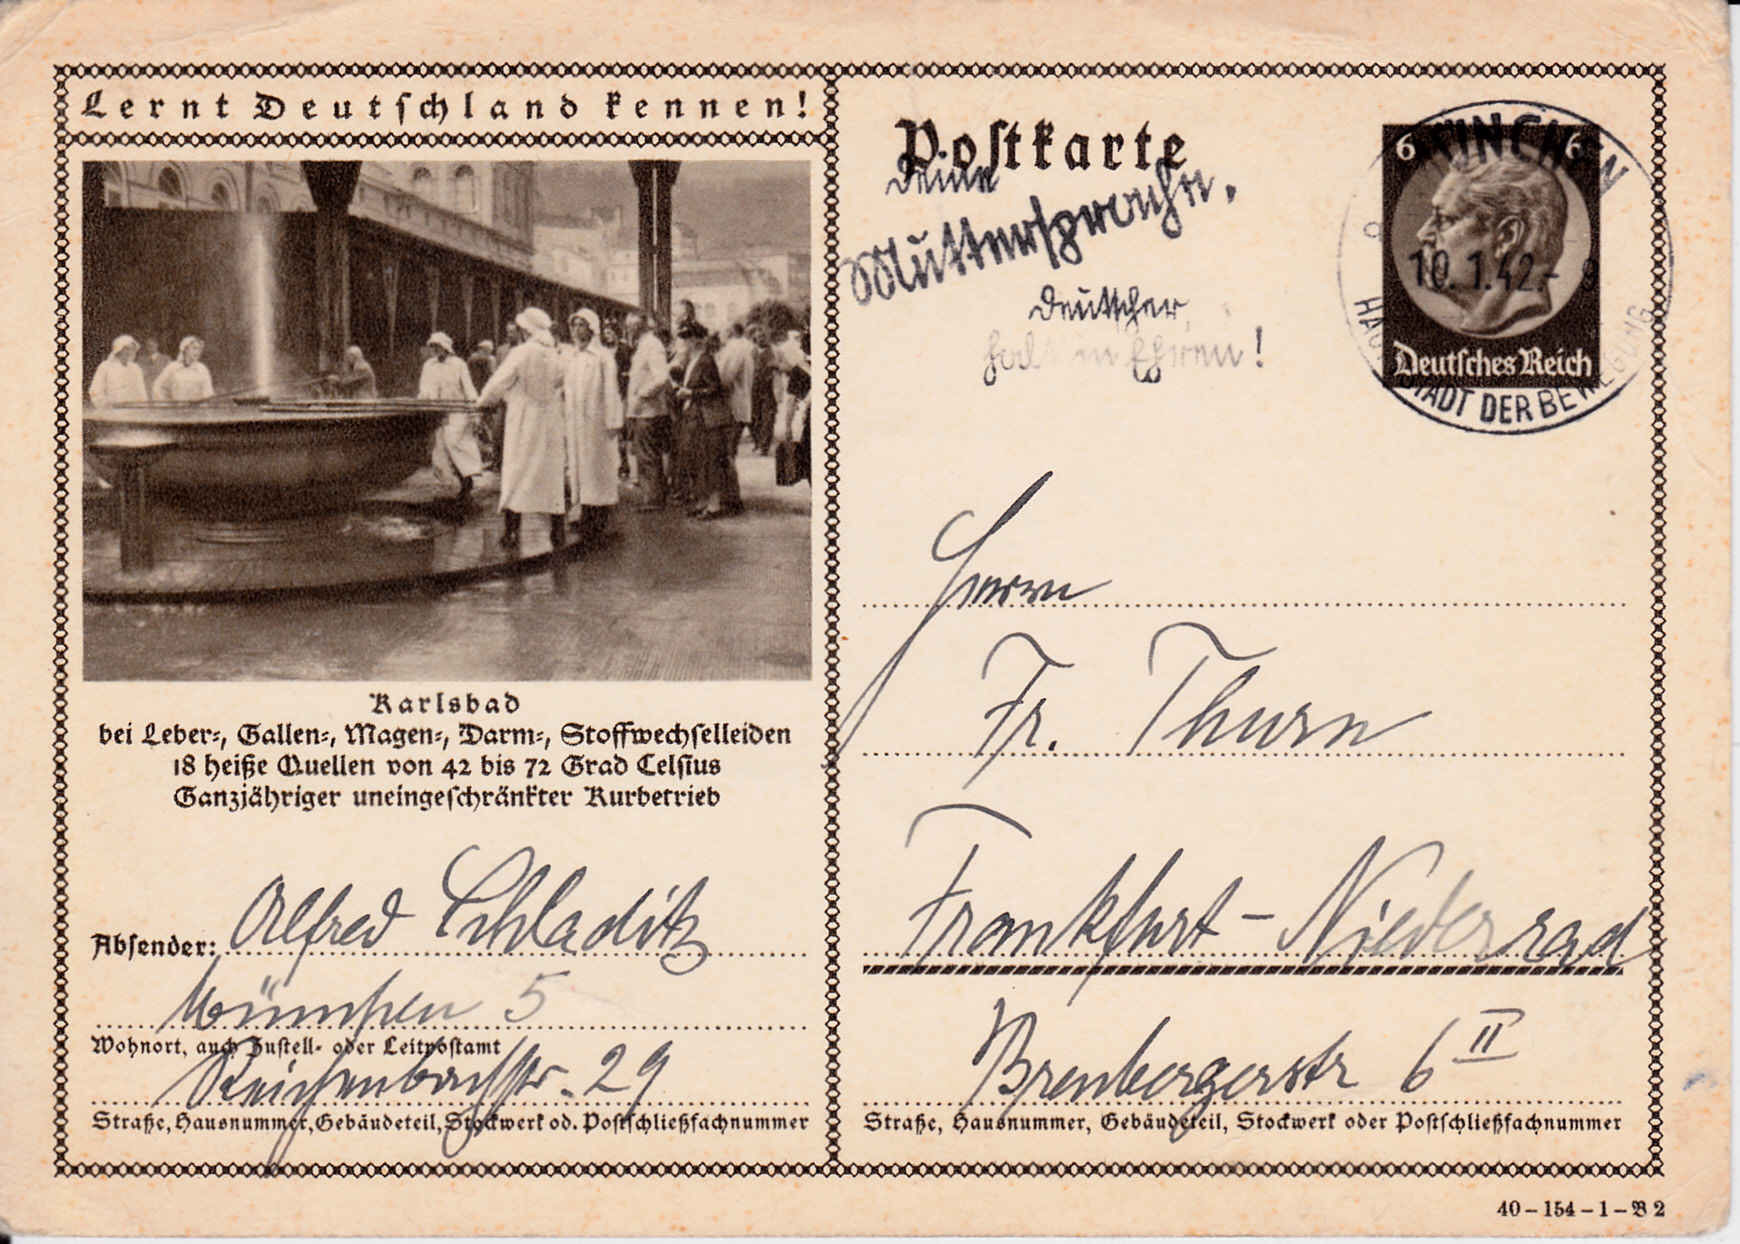 Lernt Deutschland kennen!
Karlsbad
bei Leber-, Gallen-, Magen-, Darm-, Stoffwechselleiden
18 heiße Quellen von 42 bis 72 Grad Celsius
Ganzjähriger uneingeschränkter Kurbetrieb
Absender: Alfred Schladitz
München 5
Wohnort, auch Zustell- oder Leitpostamt
Reichenbachstr. 29
Straße, Hausnummer, Gebäudeteil, Stockwerk od. Postschließfachnummer
Postkarte
Deine
Muttersprache.
Deutscher
halt in Ehren!
6 6
Deutsches Reich
MÜNCHEN
10.1.42.- 9
HAUPTSTADT DER BEWEGUNG
Herrn
Fr. Thurn
Frankfurt-Niederrad
Brenbergerstr 6 II
Straße, Hausnummer, Gebäudeteil, Stockwerk oder Postschließfachnummer
40-154-1-B 2